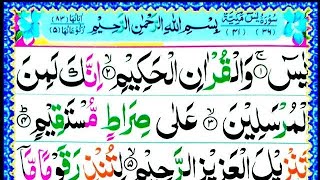 سُوْرَةُ يٰسٓ مَكِّيَّةٌ (٣٦) (٤١) بِسْمِ اللّٰهِ الرَّحْمٰنِ الرَّحِيْمِ اٰيَاتُهَا (٨٣) رُكُوْعَاتُهَا (٥)
يٰسٓ ۚ ﴿١﴾ وَالْقُرْاٰنِ الْحَكِيْمِ ﴿٢﴾ اِنَّكَ لَمِنَ
الْمُرْسَلِيْنَ ﴿٣﴾ عَلٰى صِرَاطٍ مُّسْتَقِيْمٍ ﴿٤﴾
تَنْزِيْلَ الْعَزِيْزِ الرَّحِيْمِ ﴿٥﴾ لِتُنْذِرَ قَوْمًا مَّاۤ